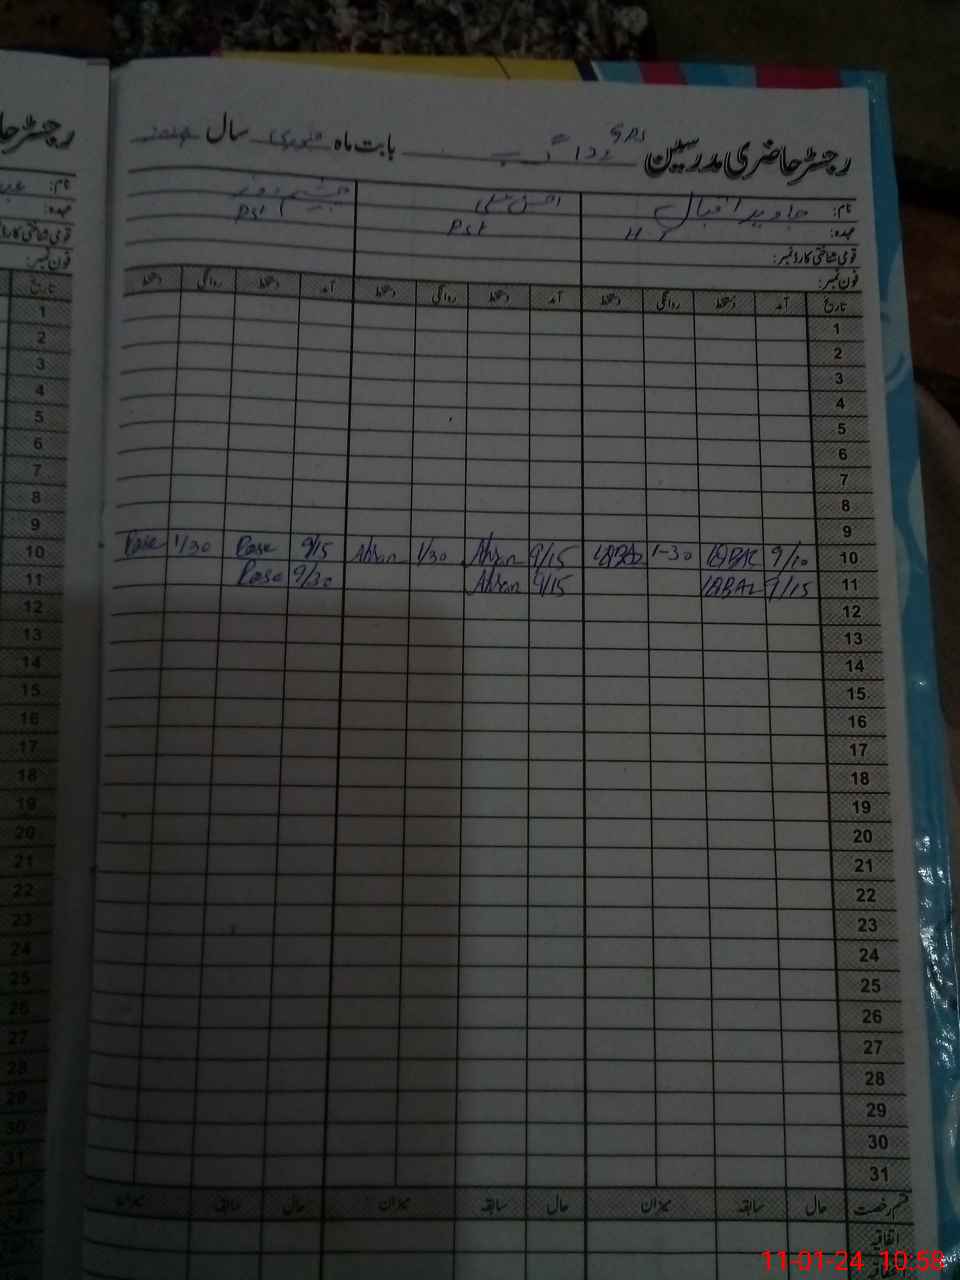 رجسٹر حاضری مدرسین GPS بابت ماہ جنوری سال
نام: جاوید اقبال احسن علی
عہدہ: PST PST
قومی شناختی کارڈ نمبر:
فون نمبر:
تاریخ آمد دستخط روانگی دستخط آمد دستخط روانگی دستخط آمد دستخط روانگی دستخط
1
2
3
4
5
6
7
8
9
10 9/10 IQBAL 1-30 IQBAL 9/15 Ahsan 1/30 Ahsan 9/15 Rose 1/30 Rose
11 9/15 IQBAL 9/15 Ahsan 9/30 Rose
12
13
14
15
16
17
18
19
20
21
22
23
24
25
26
27
28
29
30
31
قسم رخصت حال سابقہ میزان حال سابقہ میزان حال سابقہ میزان
اتفاقیہ
رجسٹر حا
نام:
عہدہ:
قومی شناختی کارڈ
فون نمبر:
تاریخ
1
2
3
4
5
6
7
8
9
10
11
12
13
14
15
16
17
18
19
20
21
22
23
24
25
26
27
28
29
30
31
11-01-24 10:58